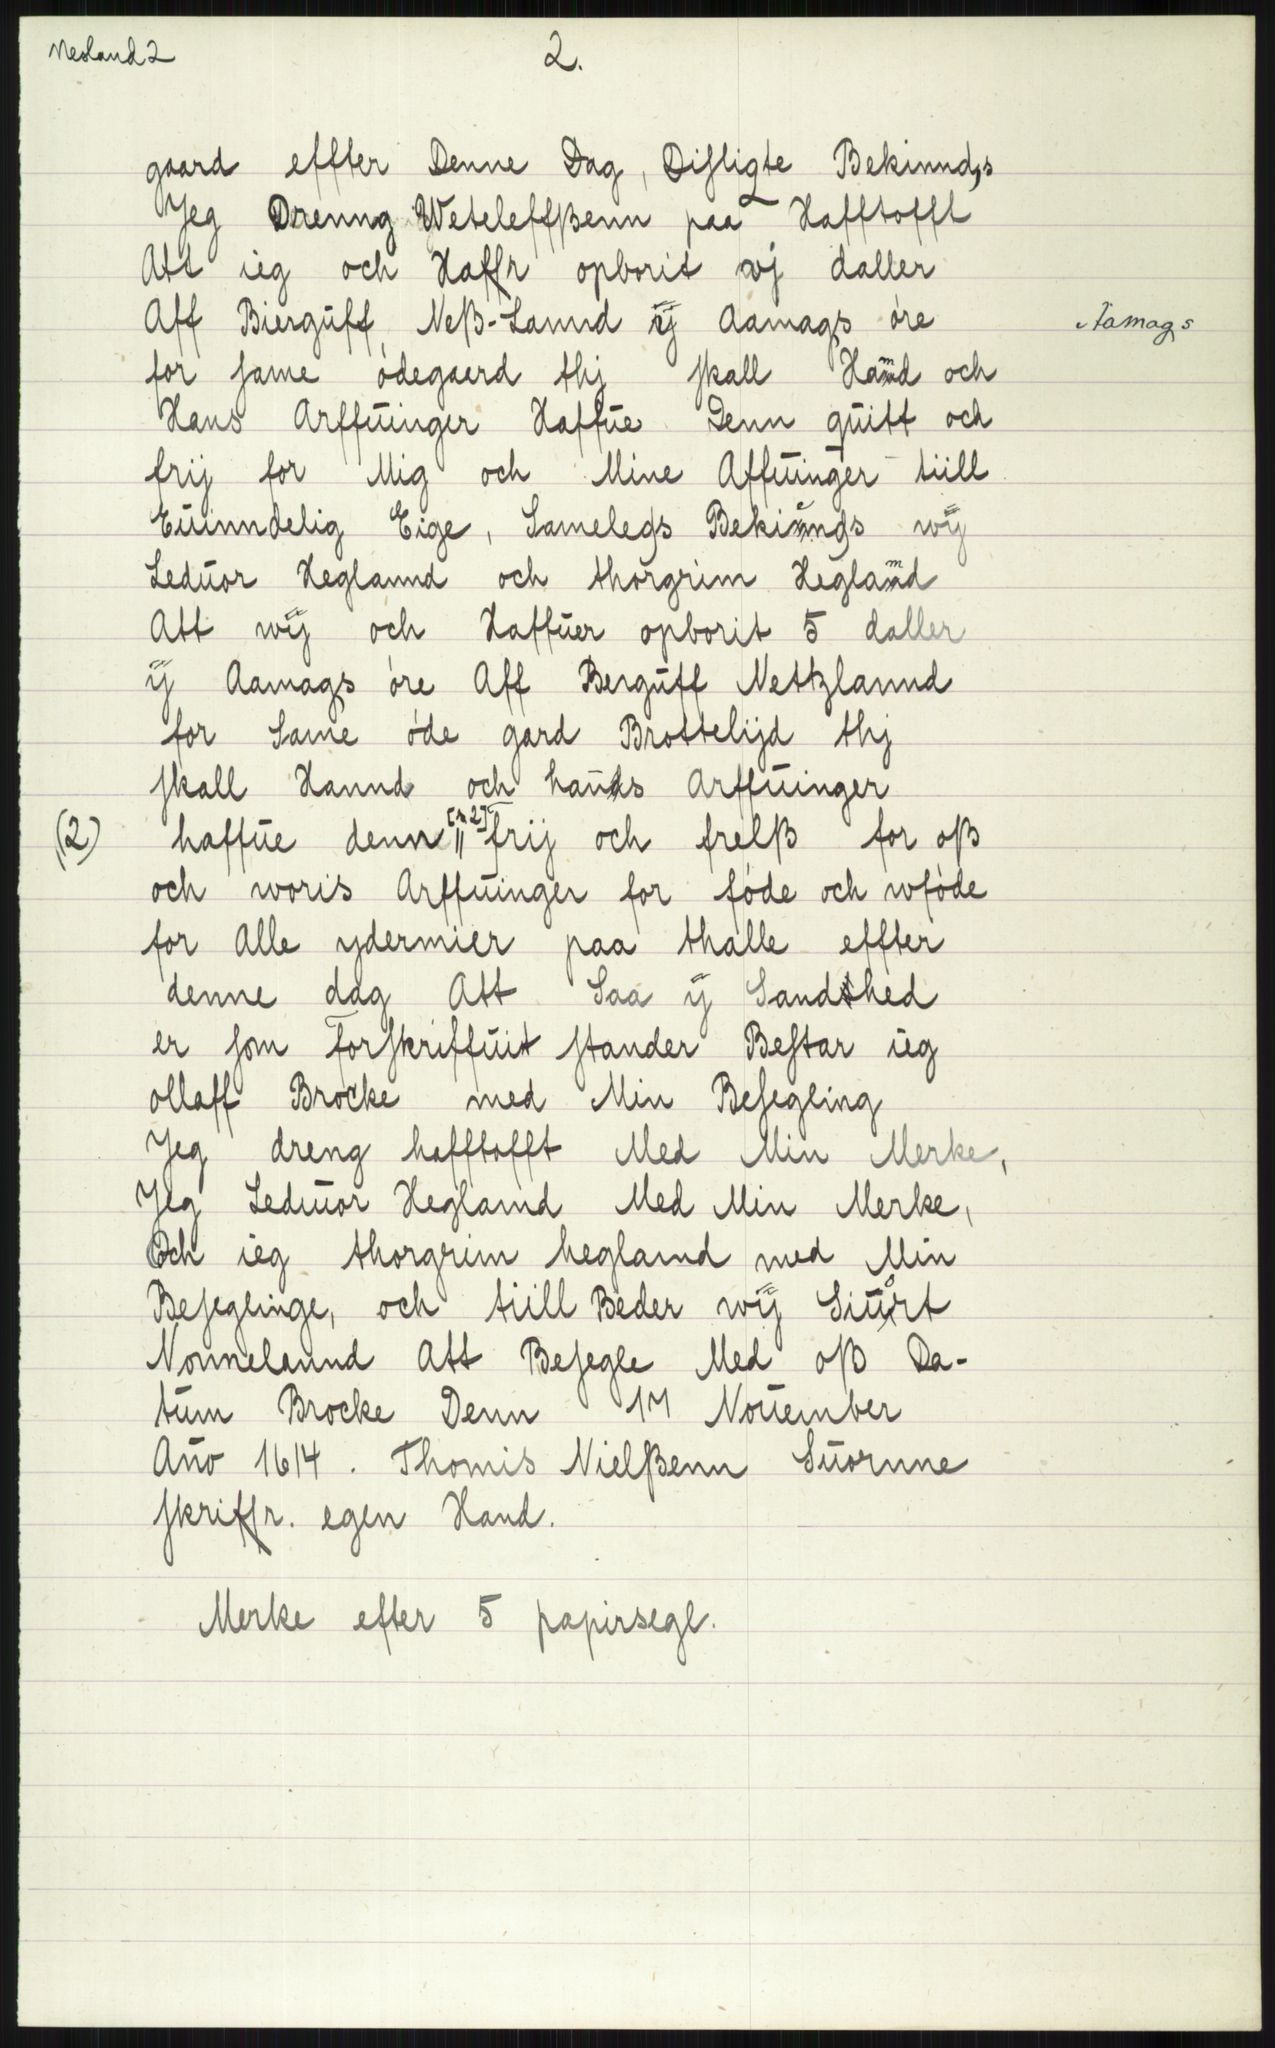 Nesland 2
2.
gaard effter Denne Dag, Disligte Bekinnds
Jeg Drenng Weteleffßenn paa Hafftofft
Att ieg och Haffr opborit vj daller
Aff Bierguff Neß-Lannd ÿ Aamags øre
Aamags
for same ødegaerd thj skall Hannd och
Hans Arffuinger Haffue Denn quitt och
frij for Mig och Mine Affuinger tiill
Euinndelig Eige, Samelegs Bekinngs wÿ
Leduor Heglannd och thorgrim Heglannd
Att wÿ och Haffuer opborit 5 daller
ÿ Aamags øre Aff Berguff Netzlannd
for Same øde gard Brottelijd thj
skall Hannd och hands Arffuinger
(2) haffue denn [n 2] frij och frelß for oß
och woris Arffuinger for føde och wføde
for Alle ydermier paa thalle effter
denne dag Att Saa ÿ Sandthed
er som Forskriffuit stander Bestar ieg
ollaff Brocke med Min Besegling
Jeg dreng hafftofft Med Min Merke,
Jeg Leduor Heglannd Med Min Merke,
Och ieg thorgrim heglannd med Min
Beseglinge, och tiill Beder wÿ Siurt
Nomelannd Att Besegle Med oß Da-
tum Brocke Denn 17 Nouember
Año 1614. Thomis Nielßenn Suornne
skriffr. egen Hand.
Merke efter 5 papirsegl.